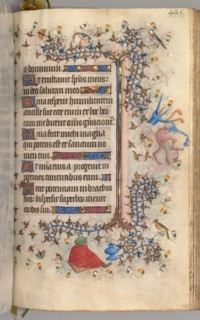 a dominum.
Et exultavit spiritus meus:
in deo salutari meo.
Quia respexit humilitatem
ancille sue ecce enim ex hoc bea
tam me dicent omnes
Quia fecit michi magna
qui potens est et sanctum no
men eius.
Et misericordia a progenie in
progenies timentibus eum.
Fecit potenciam in brachio
suo: dispersit superbos mente
cordis sui.